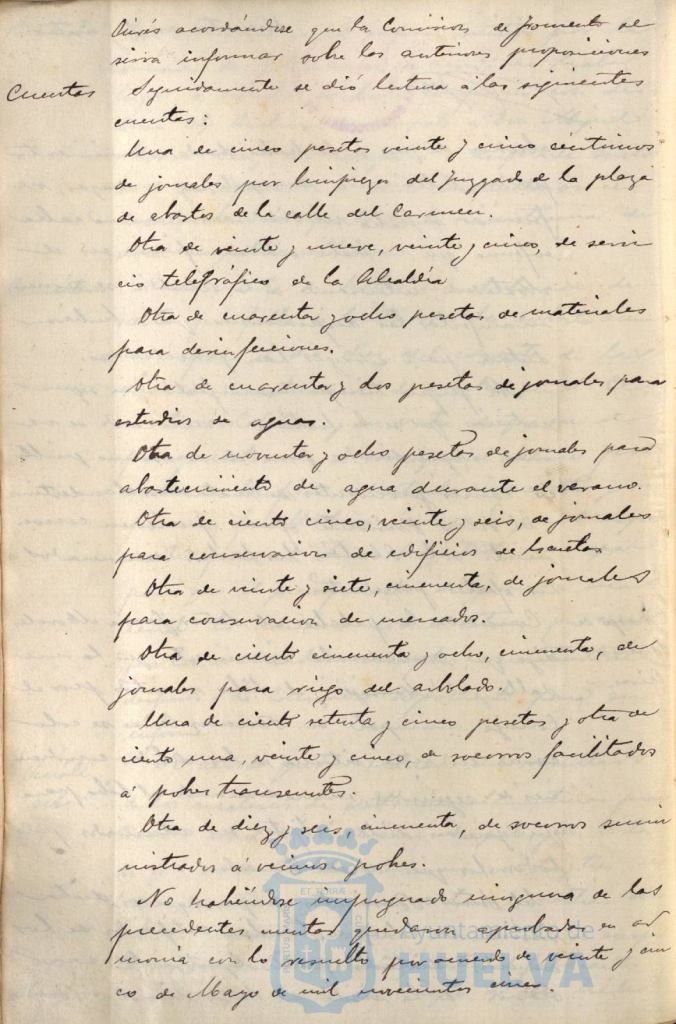 acordándose que la Comision de fomento se
sirva informar sobre las anteriores proposiciones
Cuentas
Seguidamente se dió lectura á las siguientes
cuentas:
Una de cinco pesetas veinte y cinco céntimos
de jornales por limpiezas del Juzgado de la plaza
de abastos de la calle del Carmen.
Otra de veinte y nueve, veinte y cinco, de servi
cio telegráfico de la Alcaldía
Otra de cuarenta y ocho pesetas de materiales
para desinfecciones.
Otra de cuarenta y dos pesetas de jornales para
estudios de aguas.
Otra de noventa y ocho pesetas de jornales para
abastecimiento de agua durante el verano.
Otra de ciento cinco, veinte y seis, de jornales
para conservacion de edificios de Escuelas
Otra de veinte y siete, cincuenta, de jornales
para conservacion de mercados.
Otra de ciento cincuenta y ocho, cincuenta, de
jornales para riego del arbolado.
Una de ciento setenta y cinco pesetas y otra de
ciento una, veinte y cinco, de socorros facilitados
á pobres transeuntes.
Otra de diez y seis, cincuenta, de socorros sumi
nistrados á vecinos pobres.
No habiéndose impugnado ninguna de las
precedentes cuentas quedaron aprobadas en ar
monia con lo resuelto por acuerdo de veinte y cin
co de Mayo de mil novecientos cinco.
Ayuntamiento de
HUELVA